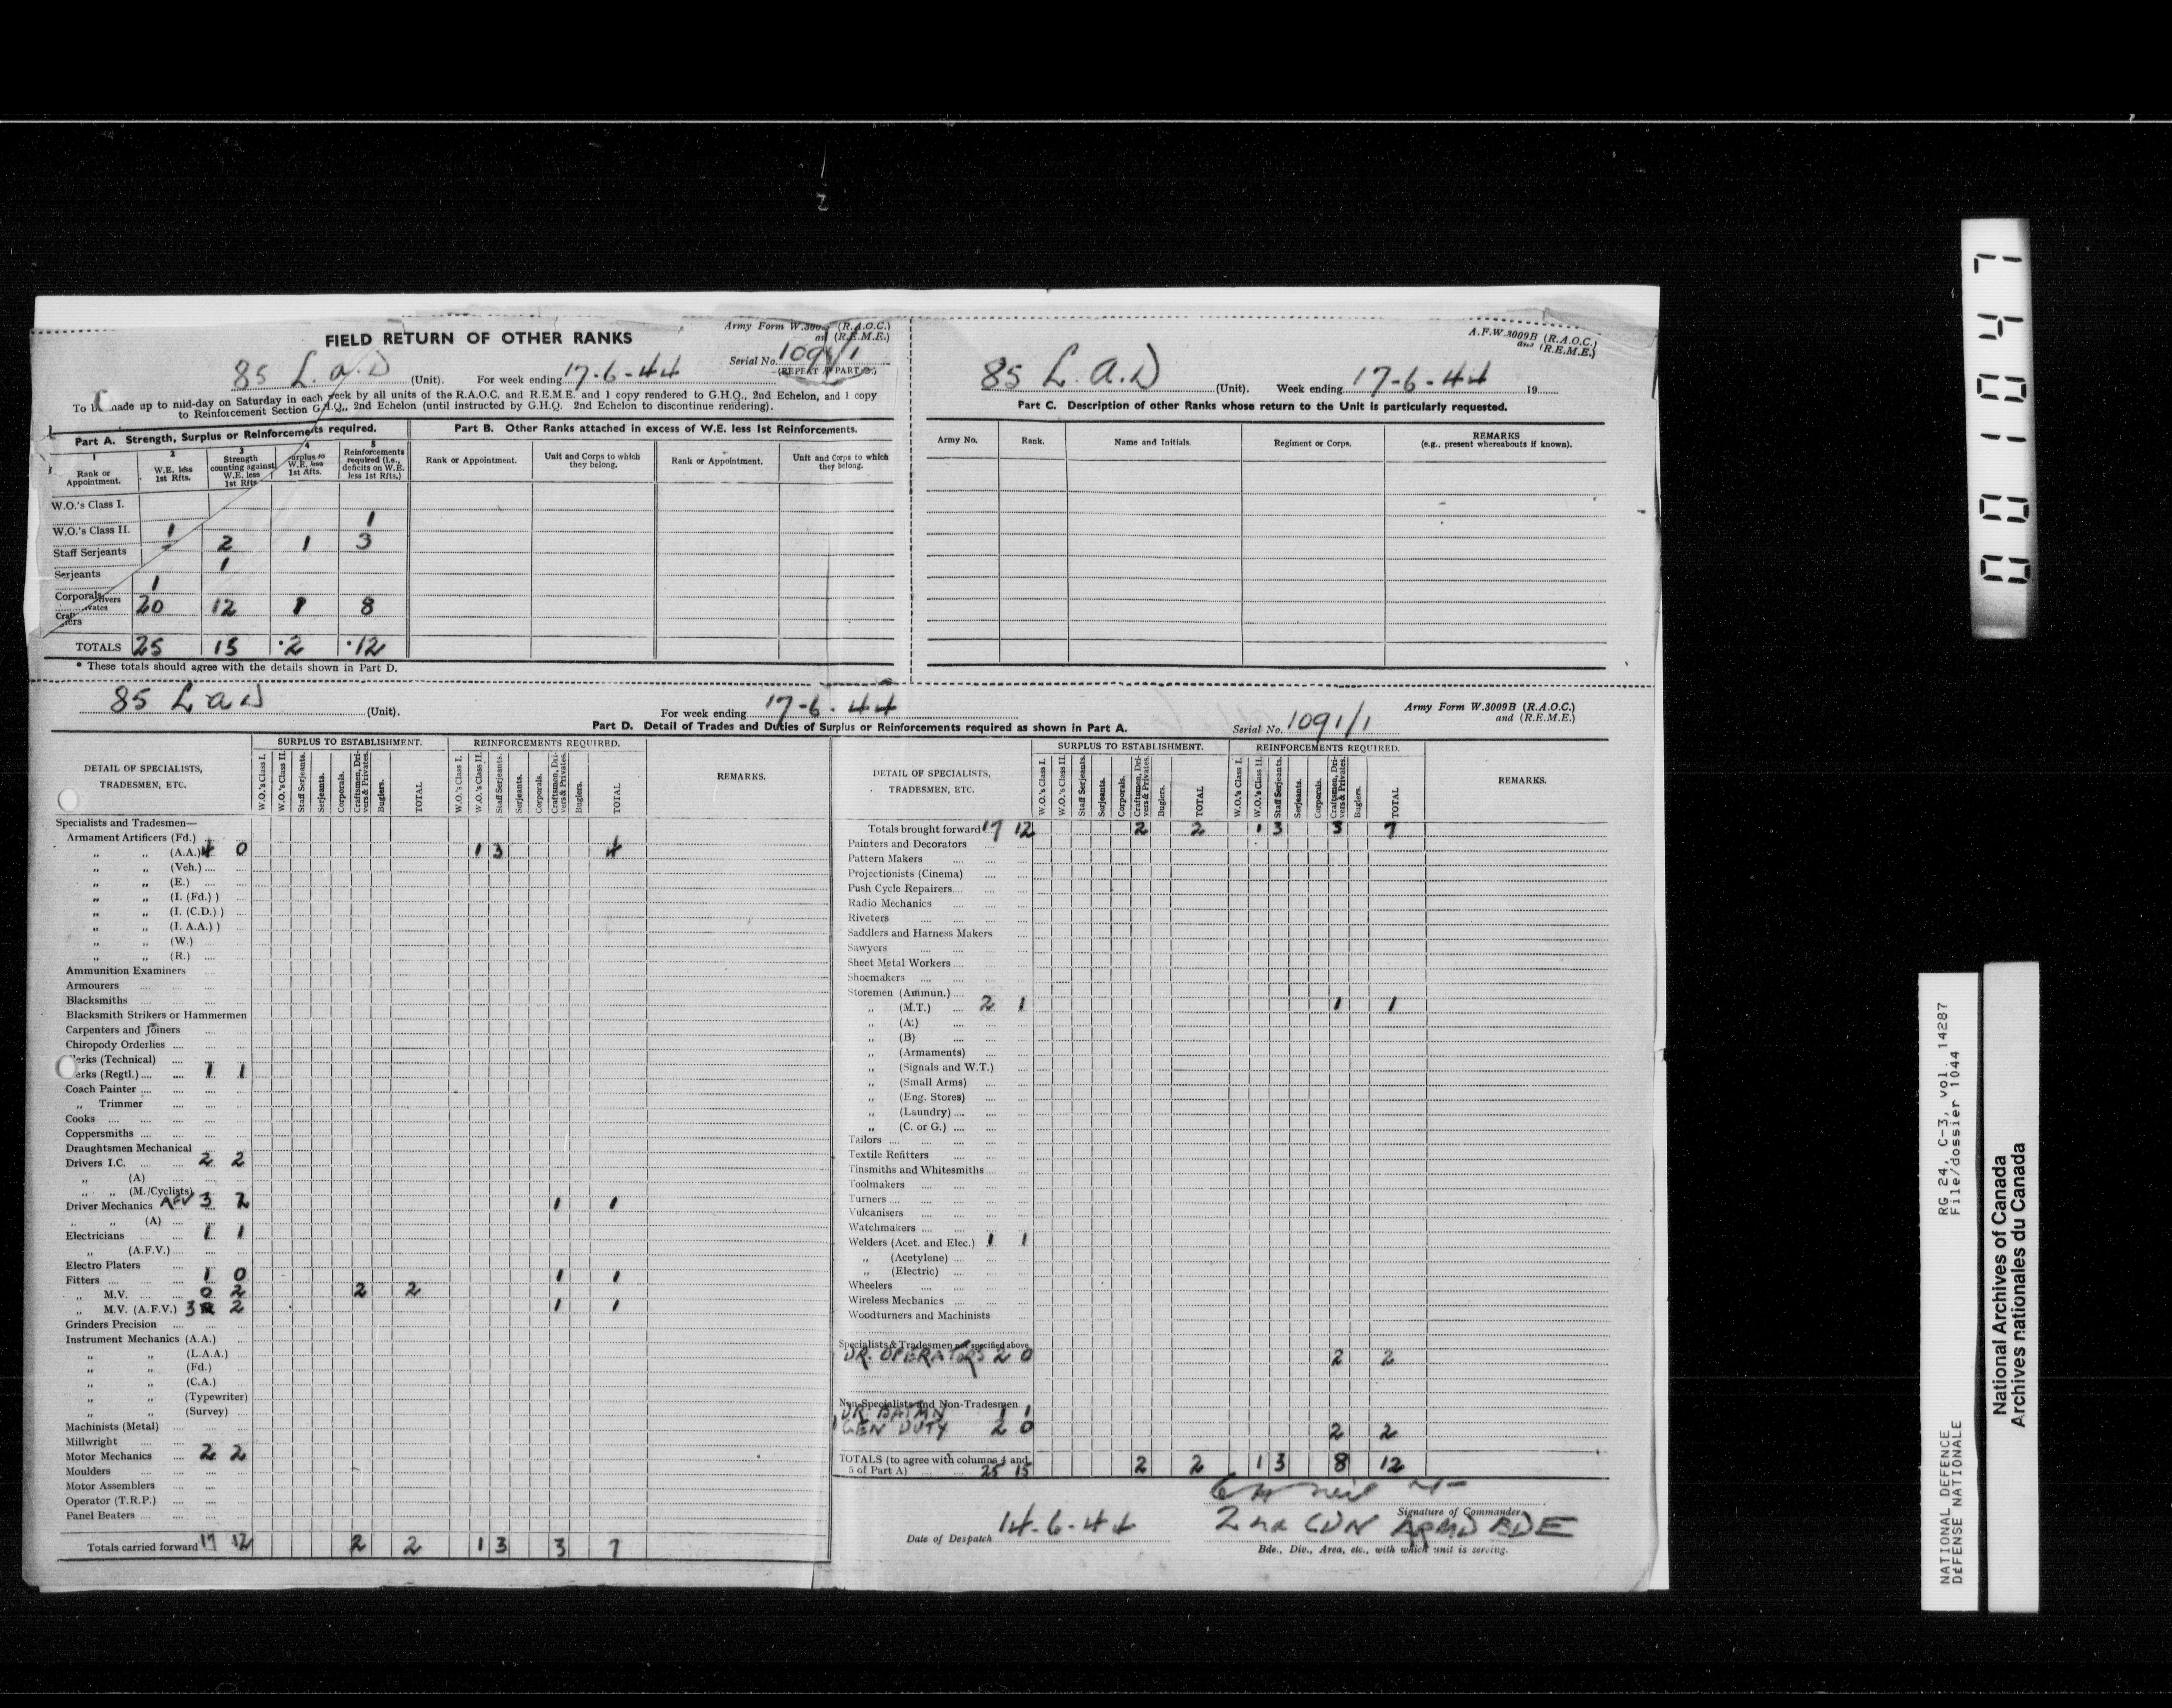 FIELD RETURN OF OTHER RANKS
Army Form W.3009 (R.A.O.C.)
and (R.E.M.E.)
Serial No. 1091/1
(REPEAT IN PART D.)
85 L.a.D (Unit). For week ending 17-6-44
To be made up to mid-day on Saturday in each week by all units of the R.A.O.C. and R.E.M.E. and 1 copy rendered to G.H.Q., 2nd Echelon, and 1 copy
to Reinforcement Section G.H.Q., 2nd Echelon (until instructed by G.H.Q. 2nd Echelon to discontinue rendering).
Part A. Strength, Surplus or Reinforcements required.
1 2 3 4 5
Rank or Appointment. W.E. less 1st Rfts. Strength counting against W.E. less 1st Rfts. Surplus to W.E. less 1st Rfts. Reinforcements required (i.e., deficits on W.E. less 1st Rfts.)
W.O.'s Class I.
W.O.'s Class II. 1 1
Staff Serjeants 2 1 3
Serjeants 1
Corporals 1
20 12 1 8
TOTALS 25 15 •2 •12
* These totals should agree with the details shown in Part D.
Part B. Other Ranks attached in excess of W.E. less 1st Reinforcements.
Rank or Appointment. Unit and Corps to which they belong. Rank or Appointment. Unit and Corps to which they belong.
A.F.W.3009B (R.A.O.C.)
and (R.E.M.E.)
85 L.a.D (Unit). Week ending 17-6-44 19
Part C. Description of other Ranks whose return to the Unit is particularly requested.
Army No. Rank. Name and Initials. Regiment or Corps. REMARKS (e.g., present whereabouts if known).
85 L a D (Unit). For week ending 17-6-44
Army Form W.3009B (R.A.O.C.)
and (R.E.M.E.)
Part D. Detail of Trades and Duties of Surplus or Reinforcements required as shown in Part A.
Serial No. 1091/1
DETAIL OF SPECIALISTS, TRADESMEN, ETC.
SURPLUS TO ESTABLISHMENT. REINFORCEMENTS REQUIRED. REMARKS.
W.O.'s Class I. W.O.'s Class II. Staff Serjeants. Serjeants. Corporals. Craftsmen, Drivers & Privates. Buglers. TOTAL
W.O.'s Class I. W.O.'s Class II. Staff Serjeants. Serjeants. Corporals. Craftsmen, Drivers & Privates. Buglers. TOTAL
Specialists and Tradesmen—
Armament Artificers (Fd.)
„ „ (A.A.) 4 0 1 3 4
„ „ (Veh.)
„ „ (E.)
„ „ (I. (Fd.) )
„ „ (I. (C.D.) )
„ „ (I. A.A.) )
„ „ (W.)
„ „ (R.)
Ammunition Examiners
Armourers
Blacksmiths
Blacksmith Strikers or Hammermen
Carpenters and Joiners
Chiropody Orderlies
Clerks (Technical)
Clerks (Regtl.) 1 1
Coach Painter
„ Trimmer
Cooks
Coppersmiths
Draughtsmen Mechanical
Drivers I.C. 2 2
„ (A)
„ „ (M./Cyclists)
Driver Mechanics AFV 3 2 1 1
„ „ (A)
Electricians 1 1
„ (A.F.V.)
Electro Platers
Fitters 1 0 1 1
„ M.V. 0 2 2 2
„ M.V. (A.F.V.) 3 2 1 1
Grinders Precision
Instrument Mechanics (A.A.)
„ „ (L.A.A.)
„ „ (Fd.)
„ „ (C.A.)
„ „ (Typewriter)
„ „ (Survey)
Machinists (Metal)
Millwright
Motor Mechanics 2 2
Moulders
Motor Assemblers
Operator (T.R.P.)
Panel Beaters
Totals carried forward 17 12 2 2 1 3 3 7
DETAIL OF SPECIALISTS, TRADESMEN, ETC.
SURPLUS TO ESTABLISHMENT. REINFORCEMENTS REQUIRED. REMARKS.
W.O.'s Class I. W.O.'s Class II. Staff Serjeants. Serjeants. Corporals. Craftsmen, Drivers & Privates. Buglers. TOTAL
W.O.'s Class I. W.O.'s Class II. Staff Serjeants. Serjeants. Corporals. Craftsmen, Drivers & Privates. Buglers. TOTAL
Totals brought forward 17 12 2 2 1 3 3 7
Painters and Decorators
Pattern Makers
Projectionists (Cinema)
Push Cycle Repairers
Radio Mechanics
Riveters
Saddlers and Harness Makers
Sawyers
Sheet Metal Workers
Shoemakers
Storemen (Ammun.)
„ (M.T.) 2 1 1 1
„ (A.)
„ (B)
„ (Armaments)
„ (Signals and W.T.)
„ (Small Arms)
„ (Eng. Stores)
„ (Laundry)
„ (C. or G.)
Tailors
Textile Refitters
Tinsmiths and Whitesmiths
Toolmakers
Turners
Vulcanisers
Watchmakers
Welders (Acet. and Elec.) 1 1
„ (Acetylene)
„ (Electric)
Wheelers
Wireless Mechanics
Woodturners and Machinists
Specialists & Tradesmen not specified above
DR. OPERATORS 2 0 2 2
Non-Specialists and Non-Tradesmen
DR. BATMN 1 1
GEN DUTY 2 0 2 2
TOTALS (to agree with columns 4 and 5 of Part A) 25 15 2 2 1 3 8 12
Signature of Commander.
Date of Despatch 14-6-44
2nd CDN ARMD BDE
Bde., Div., Area, etc., with which unit is serving.
001047
RG 24, C-3, vol. 14287
File/dossier 1044
NATIONAL DEFENCE
DÉFENSE NATIONALE
National Archives of Canada
Archives nationales du Canada